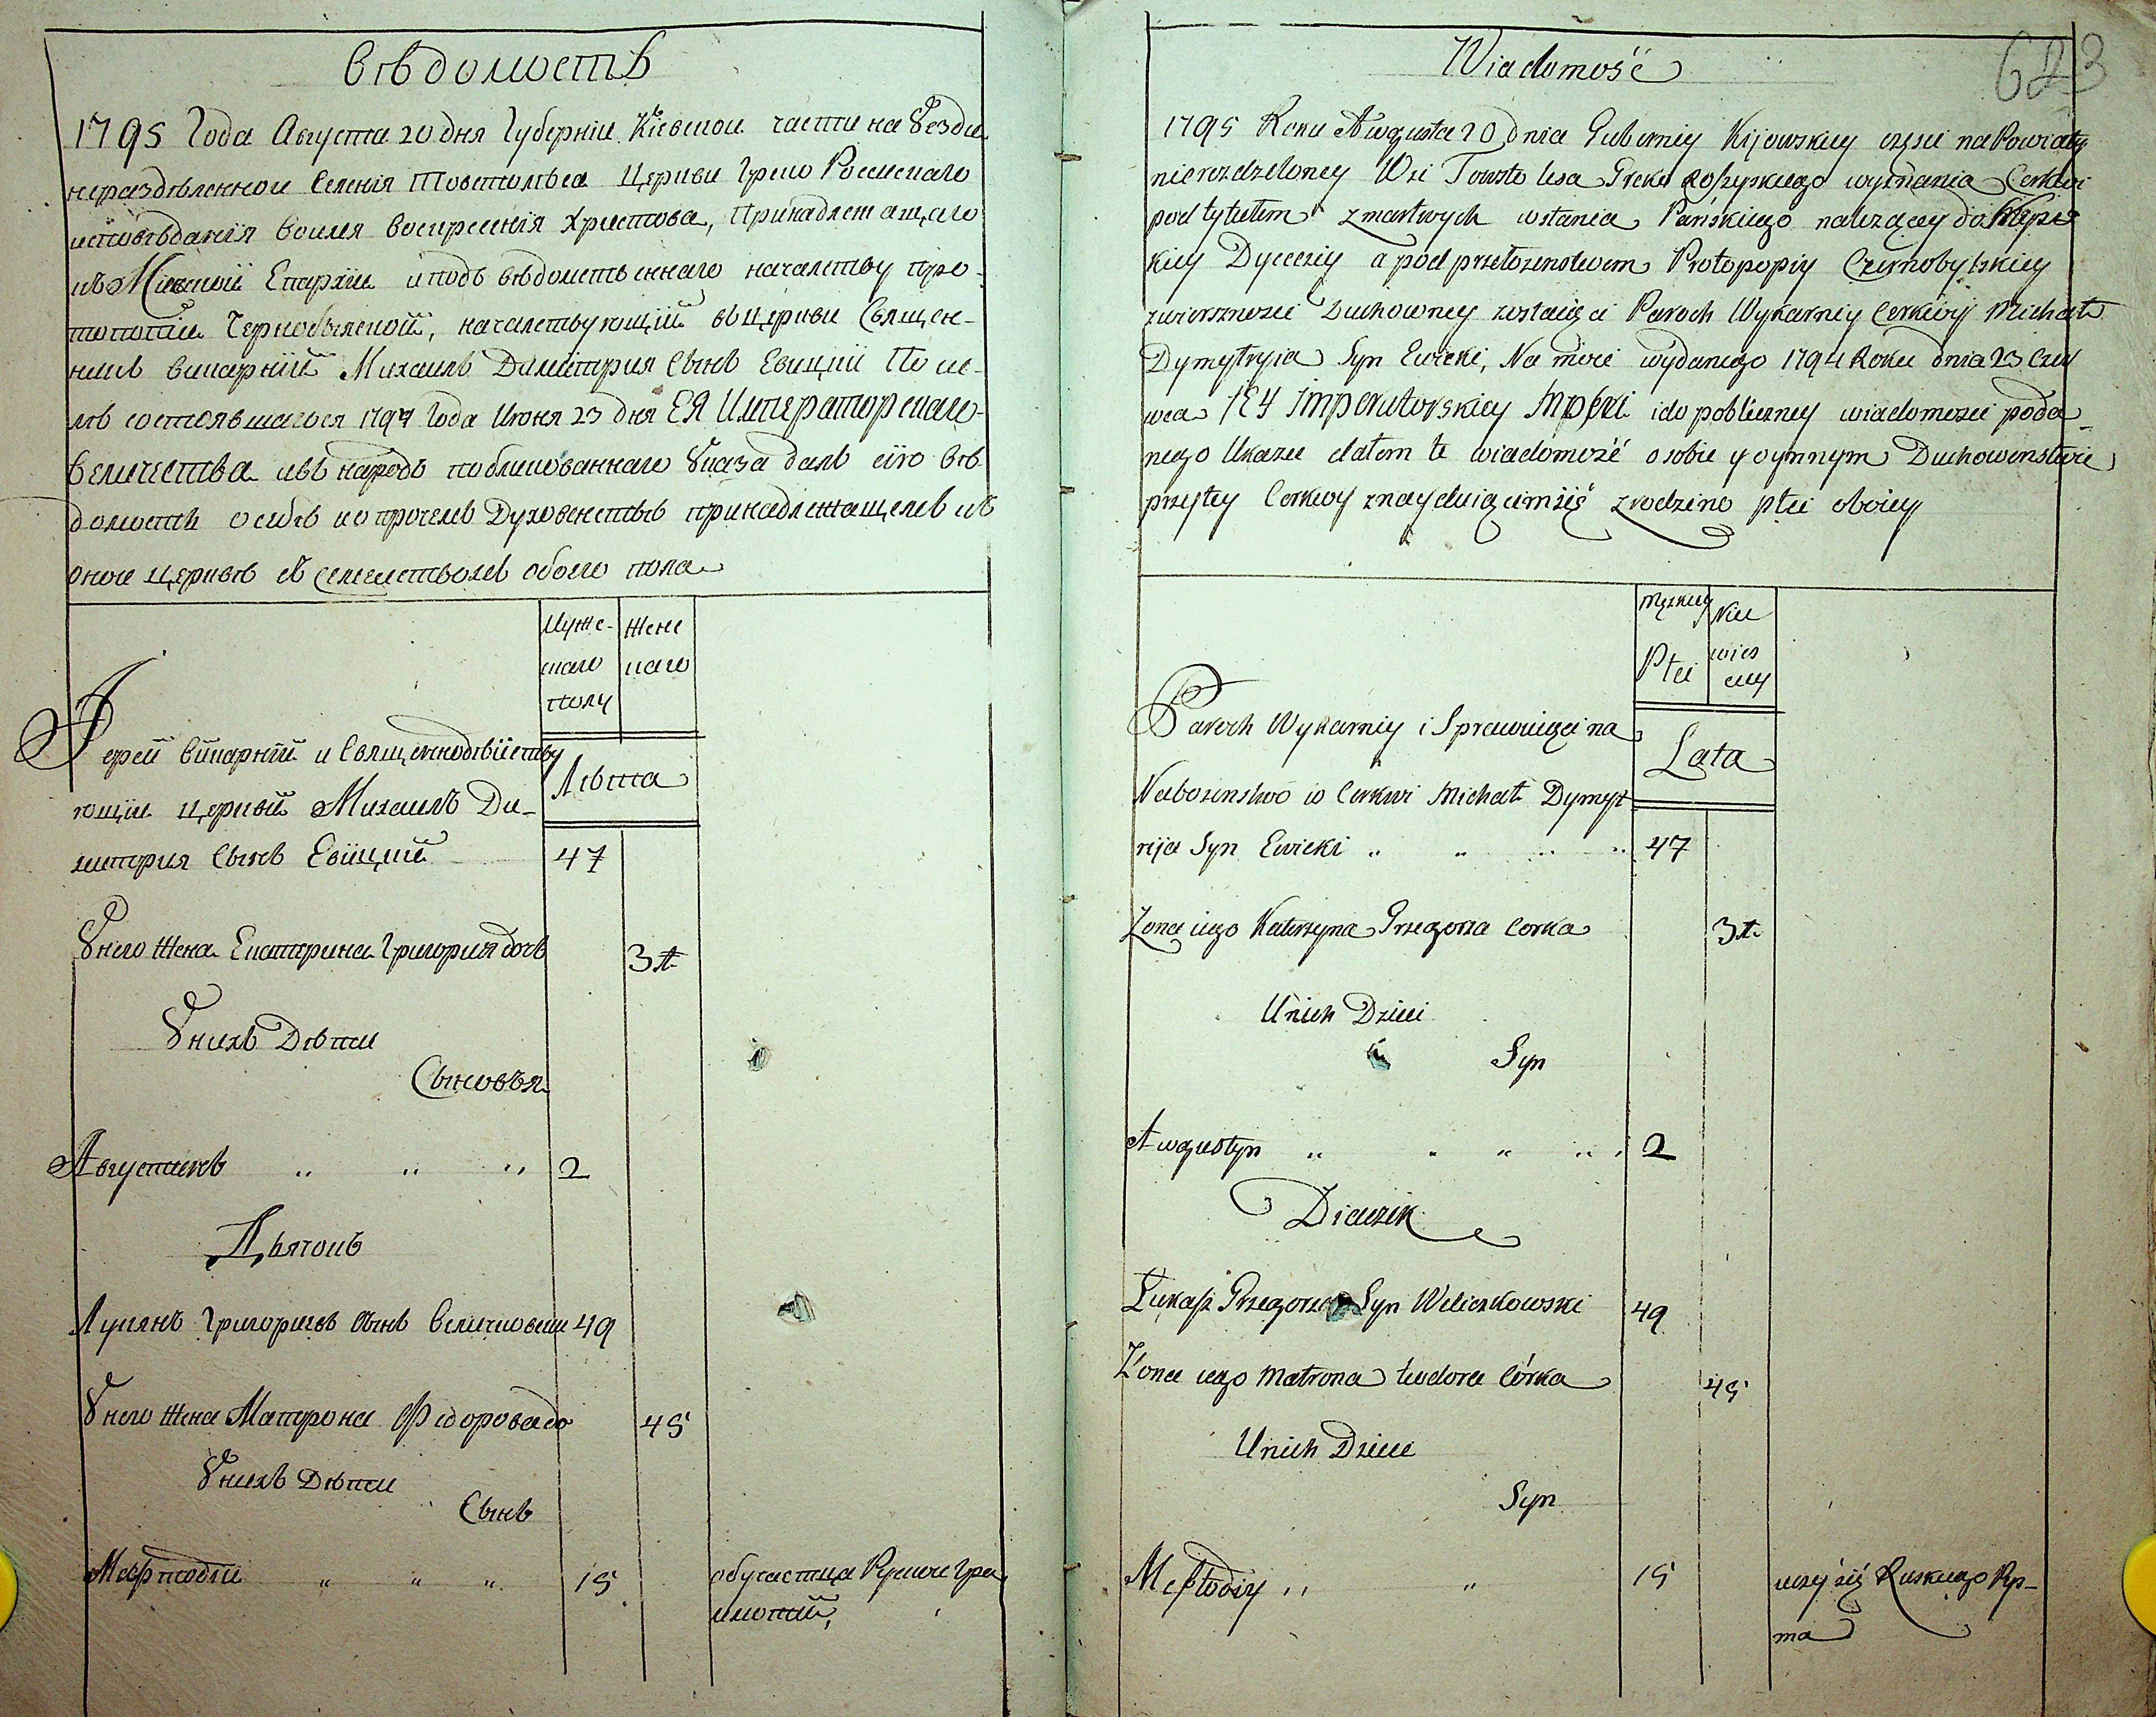 Вѣдомость
1795 Года Августа 20 дня Губерніи Кіевской части на Уезди
нераздѣленной Селенія Товстолѣса Церкви Греко Россискаго
исповѣданія воимя воскресенія Христова, принадлежащаго
къ Епархіи и подъ вѣдомственнаго началству про-
топопіи Чернобылской, началствующій въ церкви Священ-
никъ викарній Михаилъ Димитрия Сынъ Евицкій По си-
лѣ состоявшагося 1794 Года Июня 23 дня ЕЯ Императорскаго
Величества и въ народъ публикованнаго Указа далъ сію вѣ
домость о себѣ и о прочемъ Духовенствѣ принадлежащемъ къ
оной церквѣ съ Семействомъ обоего пола
Муже-
скаго
полу
Жене
скаго
Іерей викарній и Священнодѣйству
ющій церкви Михаилъ Ди-
митрия Сынъ Евицкій 47
Лѣта
Унего жена Екатерина Григория дочь
Унихъ Дѣти
Сыновья
Августинъ " " " 2
Дьячокъ
Лукянъ Григориевъ Сынъ Величковски 49
Унего жена Матрона Федорова до 45
Унихъ Дѣти
Сынъ
Мефтодій " " " 15 обучается Руской Гра
мотій,
623
Wiadomość
1795 Roku Augusta 20 dnia Guberniy Kijowskiey części na Powiaty
nierozdzeloney Wsi Towsto lesa Greko Roszyskiego wyznania Cerkwi
pod tytułem zmartwych wstania Pańskiego należącey do
kiey Dyeceziy a pod przełozenstwem Protopopiy Czernobylskiey
zwierzchności Duchowney zostaiąci Paroch Wykarniy Cerkwiy Michał
Dymytryia Syn Ewicki, Na mocy wydanego 1794 Roku dnia 23 Czer
wca IEY Imperatorskiey i do publiczney wiadomości poda
nego Ukazu dałem te wiadomość o sobie y oynnym Duchowenstwie
przytey Cerkwy znayduiącimsię z rodzino płci oboiey
Męzkiey
Płci
Nie
wies
ciey
Paroch Wykarniy i Sprawuiąci na
Nabozenstwo w Cerkwi Michał Dymyt
rija Syn Ewicki " " " " 47
Lata
Zona iego Katerzyna Grzegorza Corka
Unich Dzieci
Syn
Awgustyn " " " " 2
Diaczek
Łukasz Grzegorza Syn Weliczkowski 49
Żona iego Matrona teodora Córka 45
Unich Dzieci
Syn
Meftodiy " " 15 uczy się Ruskiego Py-
ma